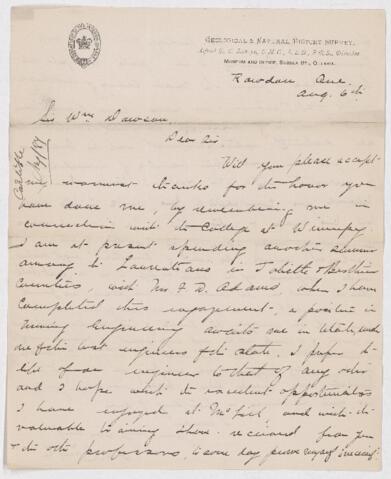 GEOLOGICAL & NATURAL HISTORY SURVEY,
Alfred R. C. Selwyn, C.M.G., L.L.D., F.R.S., Director
MUSEUM AND OFFICE, SUSSEX ST., OTTAWA.
Rawdon, Que.
Aug. 6th
Sir Wm Dawson,
Dear Sir
Will you please accept
my warmest thanks for the honor you
have done me, by remembering me in
connection with the College at Winnipeg
I am at present spending another summer
among the Laurentians in Joliette & Berthier
Counties, with Mr F. D. Adams, when I have
completed this engagement, a position in
mining Engineering awaits me in Utah, with
one of the best engineers of the state. I prefer the
life of an engineer to that of any other
and I hope with the excellent opportunities
I have enjoyed at McGill and with the
valuable training there received from you
& the other professors, to some day prove myself